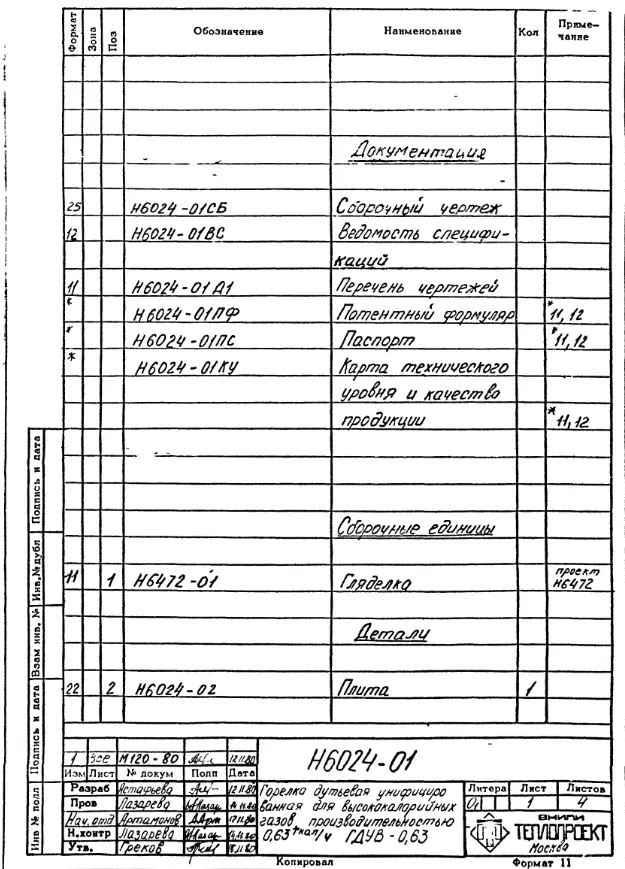 Формат Зона Поз Обозначение Наименование Кол Приме-
чание
Документация
25 Н6024-01СБ Сборочный чертеж
12 Н6024-01ВС Ведомость специфи-
каций
11 Н6024-01Д1 Перечень чертежей
* Н6024-01ПФ Потентный формуляр *11,12
* Н6024-01ПС Паспорт *11,12
* Н6024-01КУ Карта технического
уровня и качество
продукции *11,12
Сборочные единицы
11 1 Н6472-01 Гляделка проект
Н6472
Детали
22 2 Н6024-02 Плита 1
Подпись и дата
Инв.№ дубл
Взам инв. №
Подпись и дата
Инв № подл
1 Все М120-80 12.11.80
Изм Лист № докум Подп Дата
Н6024-01
Разраб Астафьева 12.11.80
Пров Лазарева
Нач.отд Артамонов
Н.контр Лазарева
Утв. Греков
Горелка дутьевая унифициро
ванная для высококалорийных
газов производительностью
0,63 Гкал/ч ГДУВ-0,63
Литера Лист Листов
1 4
ВНИПИ
ТЕПЛОПРОЕКТ
Москва
Копировал Формат 11